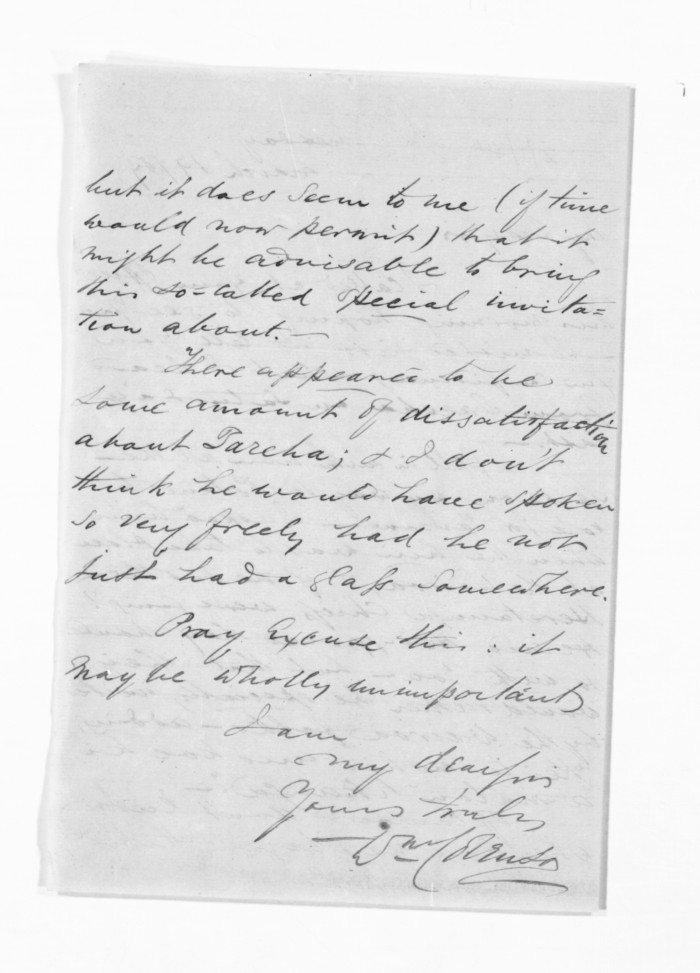 but it does seem to me (if time
would now permit) that it
might be advisable to bring
this so-called special invita=
tion about.—
There appeared to be
some amount of dissatisfaction
about Tareha; & I don't
think he would have spoken
so very freely had he not
just had a glass somewhere.
Pray excuse this: it
may be wholly unimportant
I am
my dear sir
Yours truly
Wm Colenso